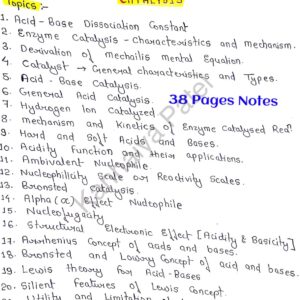 Topics :-
CATALYSIS
1. Acid - Base Dissociation Constant
2. Enzyme Catalysis - Characteristics and mechanism.
3. Derivation of mechailis mental Equation.
4. Catalyst → General characteristics and Types.
5. Acid - Base Catalysis.
6. General Acid Catalysis.
38 Pages Notes
7. Hydrogen Ion Catalyzed
8. mechanism and Kinetics of Enzyme Catalysed Rexn
9. Hard and Soft Acids and Bases.
10. Acidity function and their applications.
11. Ambivalent Nucleophile
12. Nucleophilicity Scale or Reactivity Scales.
13. Bronsted catalysis.
14. Alpha (α) Effect Nucleophile
15. Nucleofugacity
16. Structural Electronic Effect [Acidity & Basicity]
17. Arrhenius Concept of acids and bases.
18. Bronsted and Lowry Concept of acid and bases.
19. Lewis theory for Acid-Bases
20. Silient features of Lewis Concept.